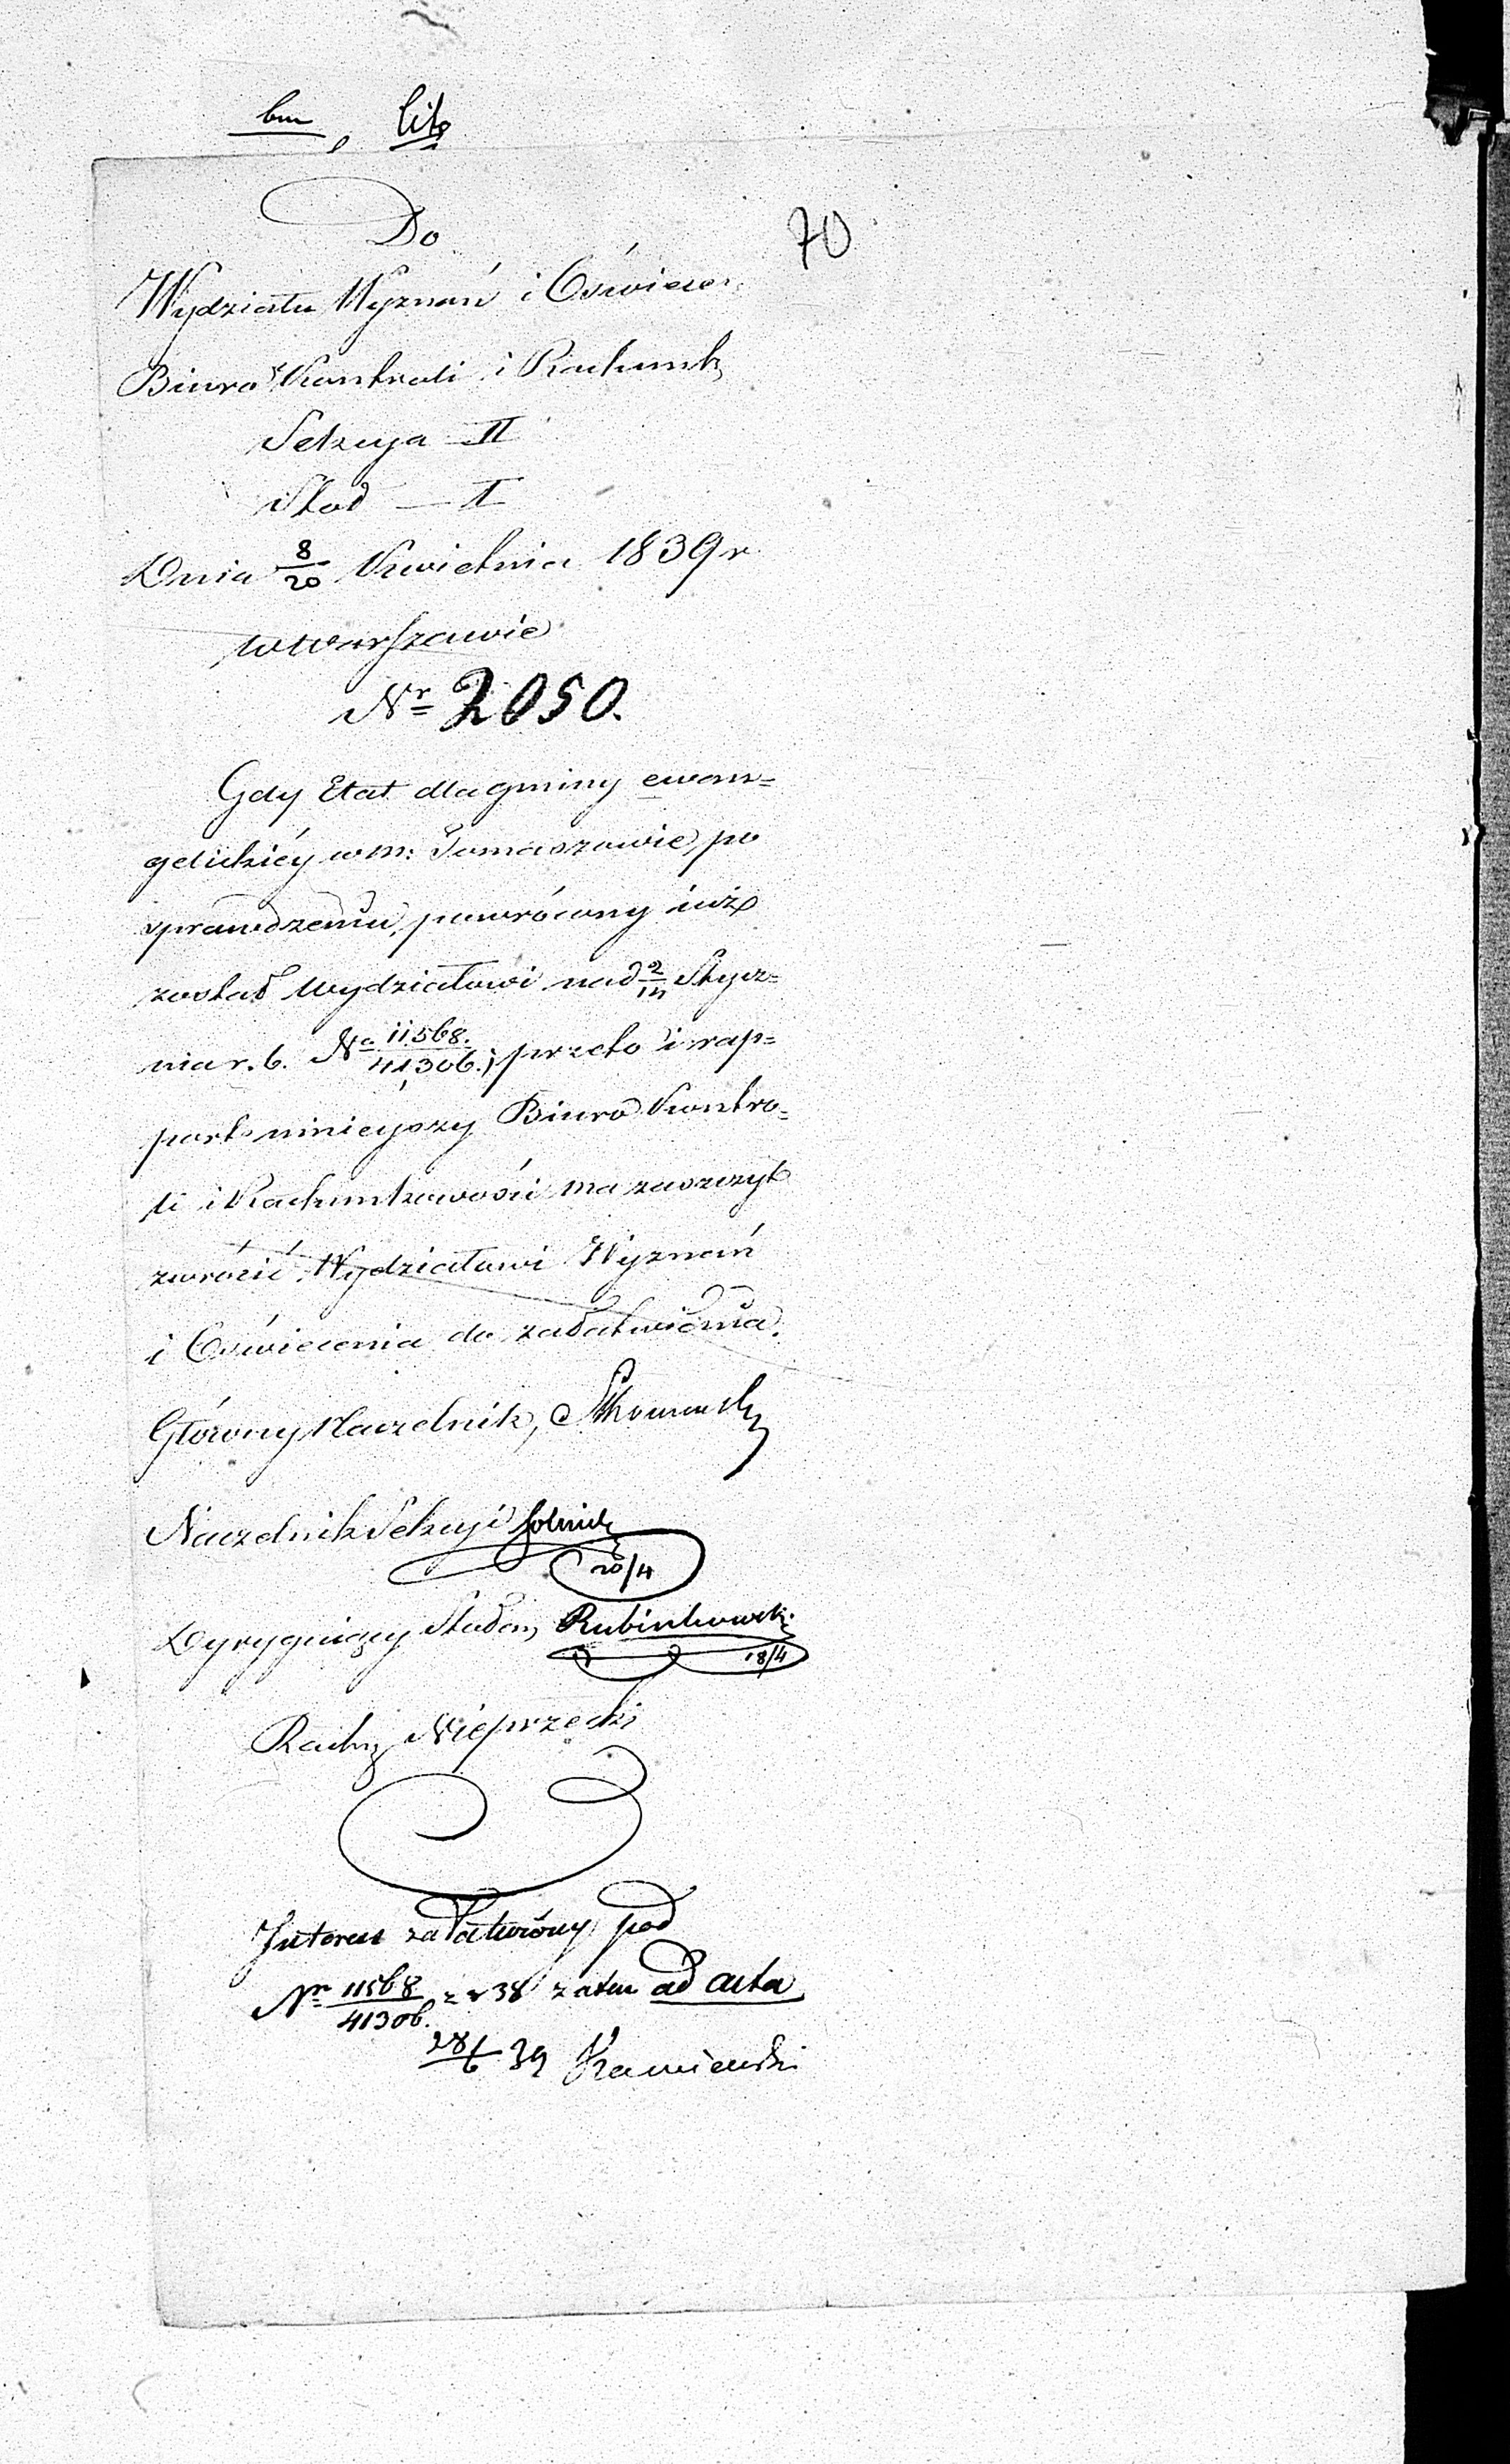 bm, lit
Do
70
Wydziału Wyznań i Oświecen
Biuro Kontroli i Rachunk
Sekcya II
Stoł — I
Dnia 8/20 Kwietnia 1839 r
w Warszawie
Nr 2050.
Gdy Etat dla gminy ewan=
gelickiéy w m: Tomaszowie, po
sprawdzeniu, powrócony iuż
został Wydziałowi nad 2/14 Stycz=
nia r. b. No 11568./41,306.; przeto i rap=
port ninieyszy Biuro Kontro=
li i Rachunkowości ma zaszczyt
zwrócić Wydziałowi Wyznań
i Oświecenia do załatwienia.
Główny Naczelnik,
Naczelnik Sekcyi
20/4
Dyryguiący Stołem, Rubinkowski
18/4
Rachm Nieprzecki
Interes załatwiony pod
Nr 11568/41306. z r 38 zatem ad acta
28/6 39 Kamieński